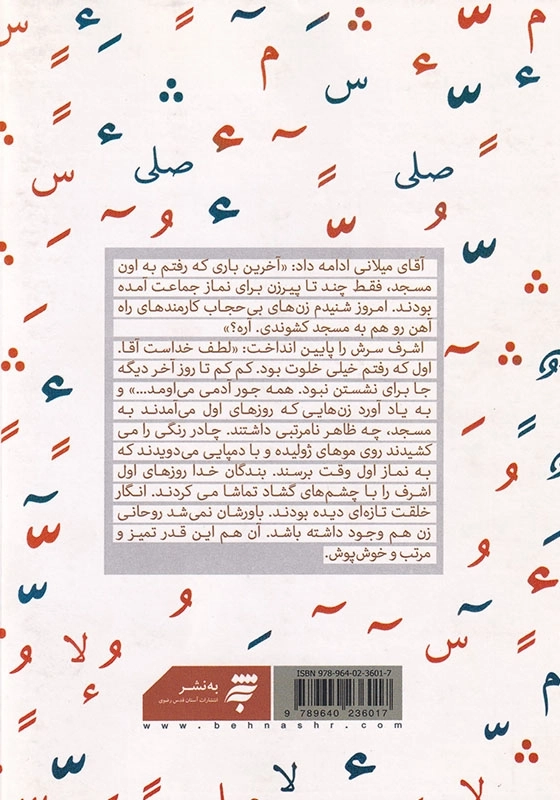 صلی
صلی
آقای میلانی ادامه داد: «آخرین باری که رفتم به اون
مسجد، فقط چند تا پیرزن برای نماز جماعت آمده
بودند. امروز شنیدم زن‌های بی‌حجاب کارمندهای راه
آهن رو هم به مسجد کشوندی. آره؟»
اشرف سرش را پایین انداخت: «لطف خداست آقا.
اول که رفتم خیلی خلوت بود. کم کم تا روز آخر دیگه
جا برای نشستن نبود. همه جور آدمی می‌اومد...» و
به یاد آورد زن‌هایی که روزهای اول می‌آمدند به
مسجد، چه ظاهر نامرتبی داشتند. چادر رنگی را می
کشیدند روی موهای ژولیده و با دمپایی می‌دویدند که
به نماز اول وقت برسند. بندگان خدا روزهای اول
اشرف را با چشم‌های گشاد تماشا می کردند. انگار
خلقت تازه‌ای دیده بودند. باورشان نمی‌شد روحانی
زن هم وجود داشته باشد. آن هم این قدر تمیز و
مرتب و خوش‌پوش.
به‌نشر
انتشارات آستان قدس رضوی
ISBN 978-964-02-3601-7
9 789640 236017
www.behnashr.com